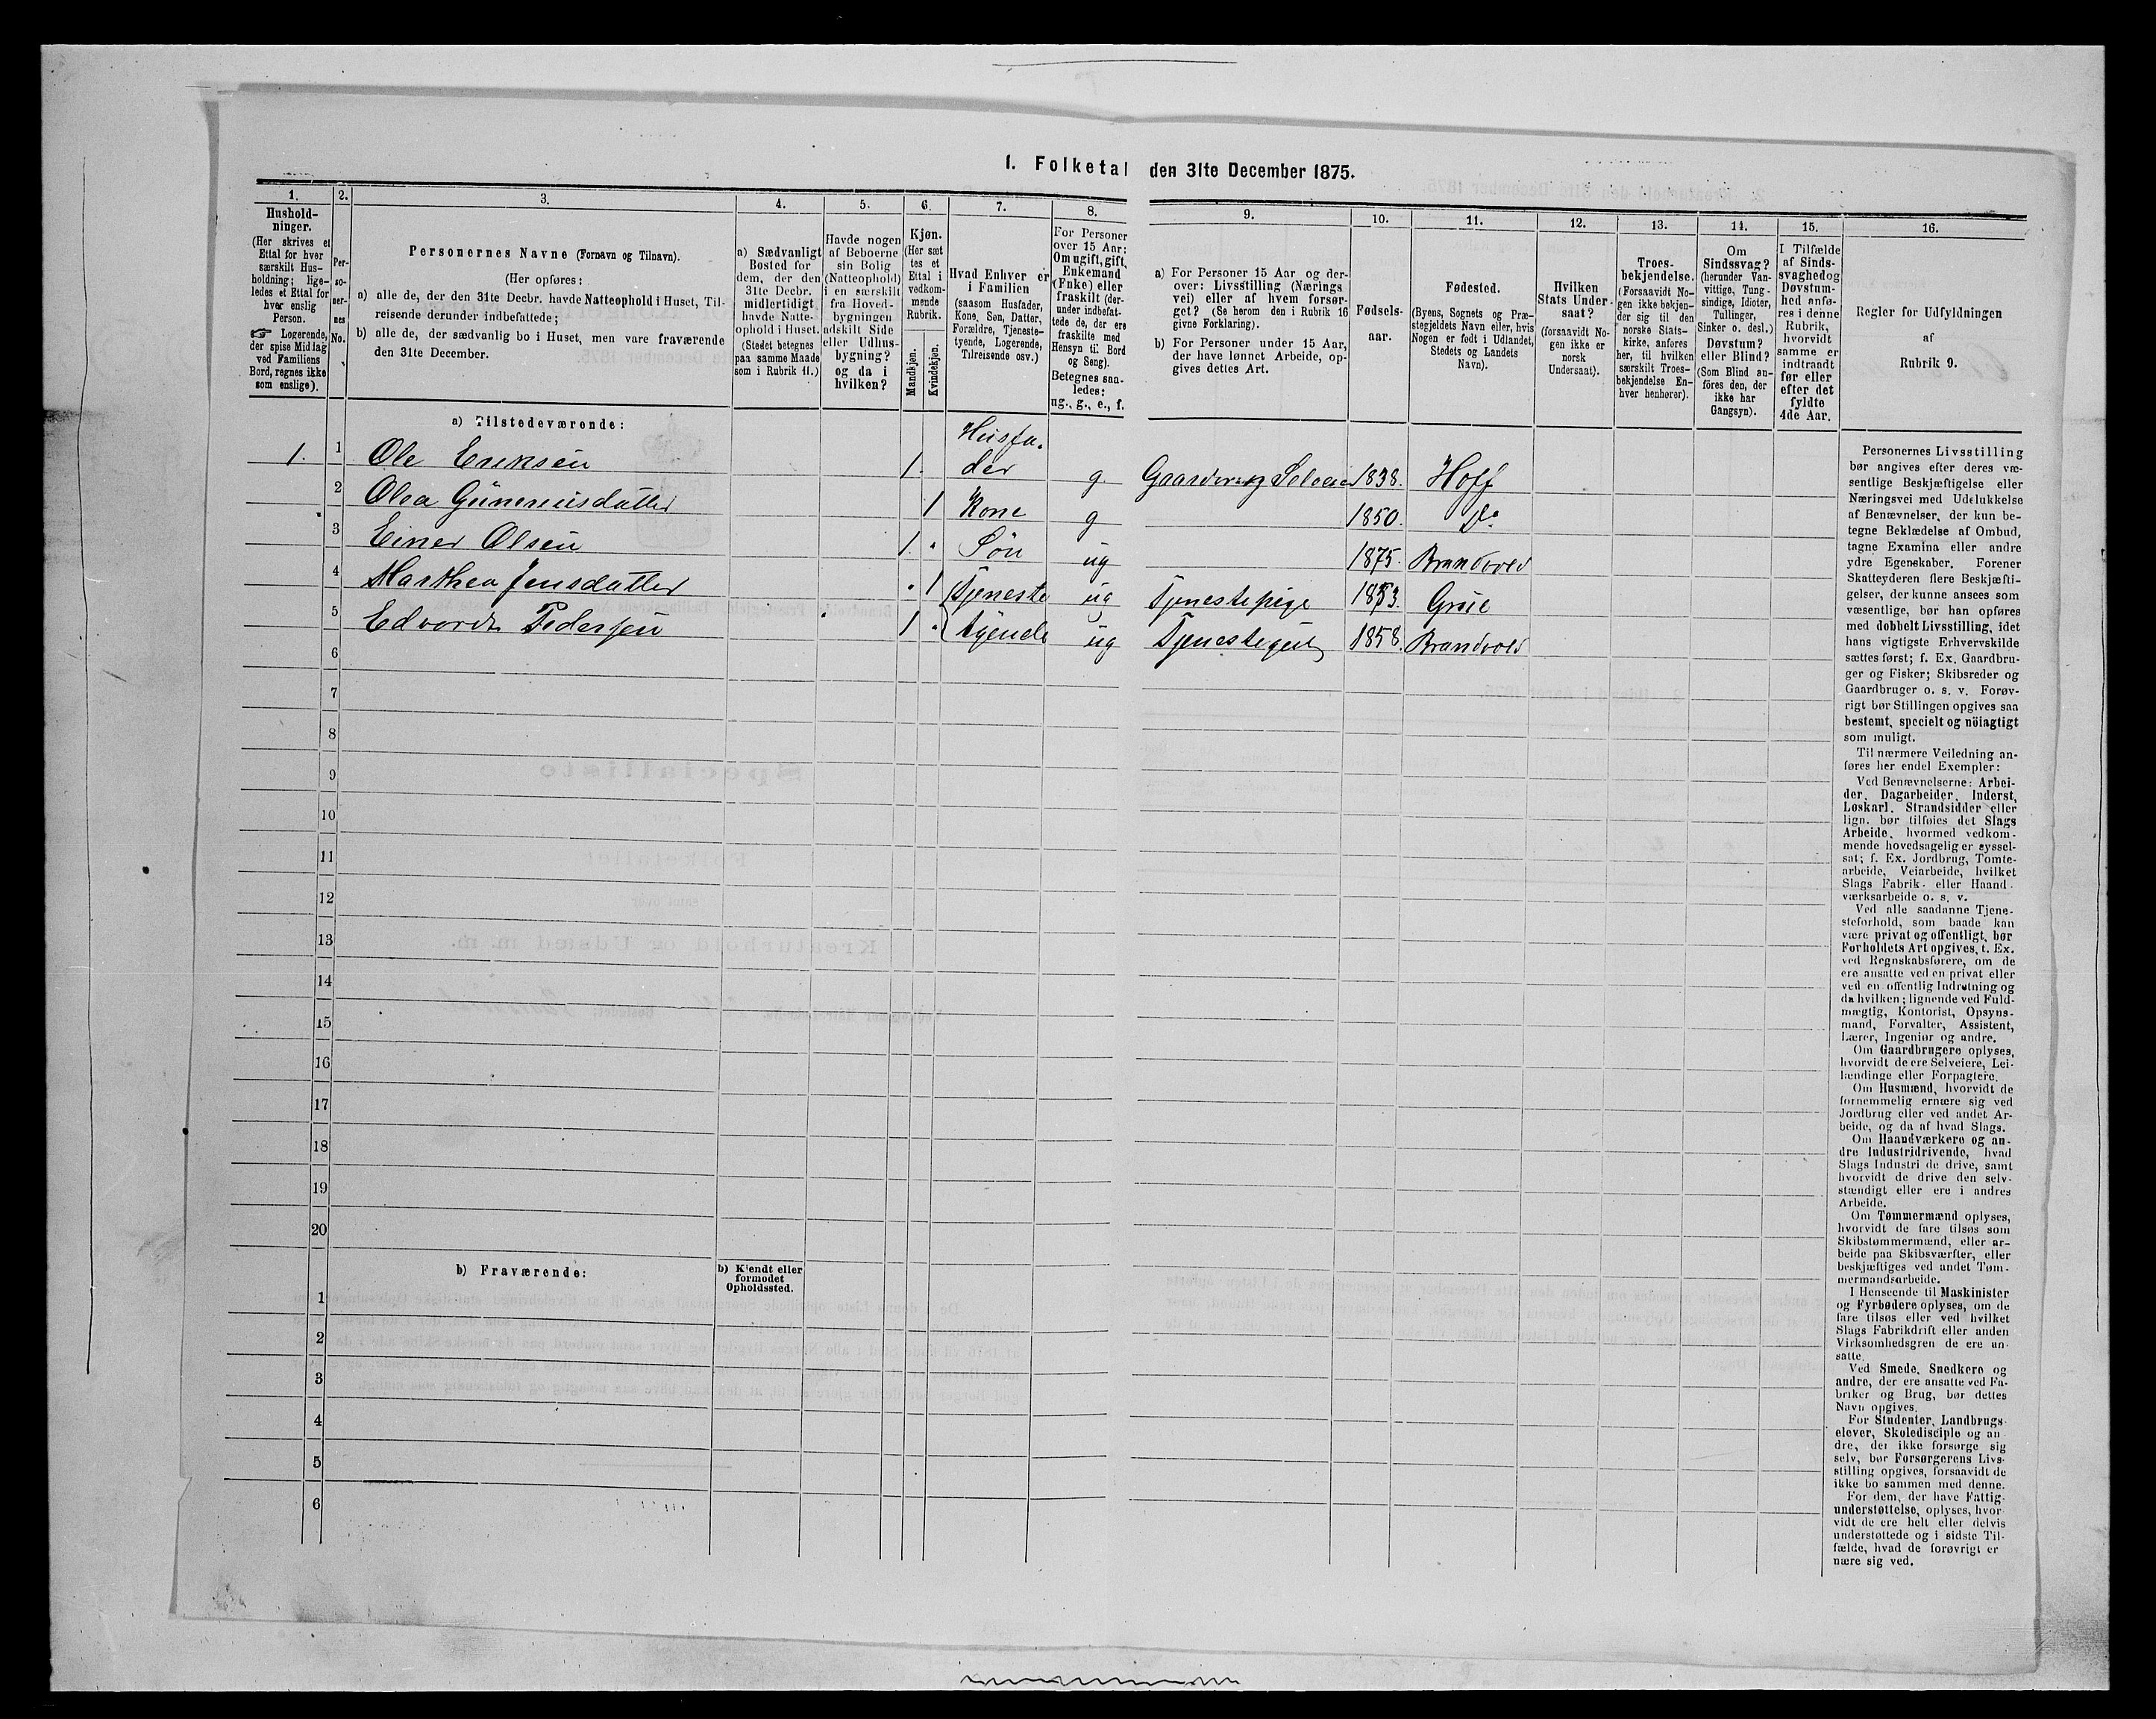 1. Folketal den 31te December 1875.
1.
Hushold-
ninger.
(Her skrives et
Ettal for hver
særskilt Hus-
holdning; lige-
ledes et Ettal for
hver enslig
Person.
☞ Logerende,
der spise Middag
ved Familiens
Bord, regnes ikke
som enslige).
2.
Per-
so-
ner-
nes
No.
3.
Personernes Navne (Fornavn og Tilnavn).
(Her opføres:
a) alle de, der den 31te Decbr. havde Natteophold i Huset, Til-
reisende derunder indbefattede;
b) alle de, der sædvanlig bo i Huset, men vare fraværende
den 31te December.
4.
a) Sædvanligt
Bosted for
dem, der den
31te Decbr.
midlertidigt
havde Natte-
ophold i Huset.
(Stedet betegnes
paa samme Maade
som i Rubrik 11.)
5.
Havde nogen
af Beboerne
sin Bolig
(Natteophold)
i en særskilt
fra Hoved-
bygningen
adskilt Side
eller Udhus-
bygning?
og da i
hvilken?
6.
Kjøn.
(Her sæt
tes et
Ettal i
vedkom-
mende
Rubrik.
Mandkjøn.
Kvindekjøn.
7.
Hvad Enhver er
i Familien
(saasom Husfader,
Kone, Søn, Datter,
Forældre, Tjeneste-
tyende, Logerende,
Tilreisende osv.)
8.
For Personer
over 15 Aar:
Om ugift, gift,
Enkemand
(Enke) eller
fraskilt (der-
under indbefat-
tede de, der ere
fraskilte med
Hensyn til Bord
og Seng).
Betegnes saa-
ledes:
ug., g., e., f.
9.
a) For Personer 15 Aar og der-
over: Livsstilling (Nærings
vei) eller af hvem forsør-
get? (Se herom den i Rubrik 16
givne Forklaring).
b) For Personer under 15 Aar,
der have lønnet Arbeide, op-
gives dettes Art.
10.
Fødsels-
aar.
11.
Fødested.
(Byens, Sognets og Præ-
stegjeldets Navn eller, hvis
Nogen er født i Udlandet,
Stedets og Landets
Navn).
12.
Hvilken
Stats Under-
saat?
(forsaavidt No-
gen ikke er
norsk
Undersaat).
13.
Troes-
bekjendelse.
(Forsaavidt No-
gen ikke bekjen-
der sig til den
norske Stats-
kirke, anføres
her, til hvilken
særskilt Troes-
bekjendelse En-
hver henhører).
14.
Om
Sindssvag?
(herunder Van-
vittige, Tung-
sindige, Idioter,
Tullinger,
Sinker o. desl.)
Døvstum?
eller Blind?
(Som Blind an-
føres den, der
ikke har
Gangsyn).
15.
I Tilfælde
af Sinds-
svaghed og
Døvstum-
hed anfø-
res i denne
Rubrik,
hvorvidt
samme er
indtrandt
før eller
efter det
fyldte
4de Aar.
16.
Regler for Udfyldningen
af
Rubrik 9.
a) Tilstedeværende:
1. 1 Ole Eriksen 1. Husfa-
der g Gaardbrug Seleier 1838. Hoff
2 Olea Gunneriusdatter 1 Kone g 1850. do
3 Einer Olsen 1. Søn ug 1875. Brandvold
4 Marthea Jensdatter 1 Tjeneste ug Tjenestepige 1853. Grue
5 Edvardt Pedersen 1 tyende ug Tjenestegut 1858. Brandvold
6
7
8
9
10
11
12
13
14
15
16
17
18
19
20
b) Fraværende:
b) Kjendt eller
formodet
Opholdssted.
1
2
3
4
5
6
Personernes Livsstilling
bør angives efter deres væ-
sentlige Beskjæftigelse eller
Næringsvei med Udelukkelse
af Benævnelser, der kun be-
tegne Beklædelse af Ombud,
tagne Examina eller andre
ydre Egenskaber. Forener
Skatteyderen flere Beskjæfti-
gelser, der kunne ansees som
væsentlige, bør han opføres
med dobbelt Livsstilling, idet
hans vigtigste Erhvervskilde
sættes først; f. Ex. Gaardbru-
ger og Fisker; Skibsreder og
Gaardbruger o. s. v. Forøv-
rigt bør Stillingen opgives saa
bestemt, specielt og nöiagtigt
som muligt.
Til nærmere Veiledning an-
føres her endel Exempler:
Ved Benævnelserne: Arbei-
der, Dagarbeider, Inderst,
Løskarl, Strandsidder eller
lign. bør tilføies det Slags
Arbeide, hvormed vedkom-
mende hovedsagelig er syssel-
sat; f. Ex. Jordbrug, Tomte-
arbeide, Veiarbeide, hvilket
Slags Fabrik- eller Haand-
værksarbeide o. s. v.
Ved alle saadanne Tjene-
steforhold, som baade kan
være privat og offentligt, bør
Forholdets Art opgives, t. Ex.
ved Regnskabsførere, om de
ere ansatte ved en privat eller
ved en offentlig Indretning og
da hvilken; lignende ved Fuld-
mægtig, Kontorist, Opsyns-
mand, Forvalter, Assistent,
Lærer, Ingeniør og andre.
Om Gaardbrugere oplyses,
hvorvidt de ere Selveiere, Lei-
lændinge eller Forpagtere.
Om Husmænd, hvorvidt de
fornemmelig ernære sig ved
Jordbrug eller ved andet Ar-
beide, og da af hvad Slags.
Om Haandværkere og an-
dre Industridrivende, hvad
Slags Industri de drive, samt
hvorvidt de drive den selv-
stændigt eller ere i andres
Arbeide.
Om Tømmermænd oplyses,
hvorvidt de fare tilsøs som
Skibstømmermænd, eller ar-
beide paa Skibsværfter, eller
beskjæftiges ved andet Tøm-
mermandsarbeide.
I Henseende til Maskinister
og Fyrbødere oplyses, om de
fare tilsøs eller ved hvilket
Slags Fabrikdrift eller anden
Virksomhedsgren de ere an-
satte.
Ved Smede, Snedkere og
andre, der ere ansatte ved Fa-
briker og Brug, bør dettes
Navn opgives.
For Studenter, Landbrugs-
elever, Skoledisciple og an
dre, der ikke forsørge sig
selv, bør Forsørgerens Livs-
stilling opgives, forsaavidt de
ikke bo sammen med denne.
For dem, der have Fattig-
understøttelse, oplyses, hvor
vidt de ere helt eller delvis
understøttede og i sidste Til-
fælde, hvad de forøvrigt er
nære sig ved.